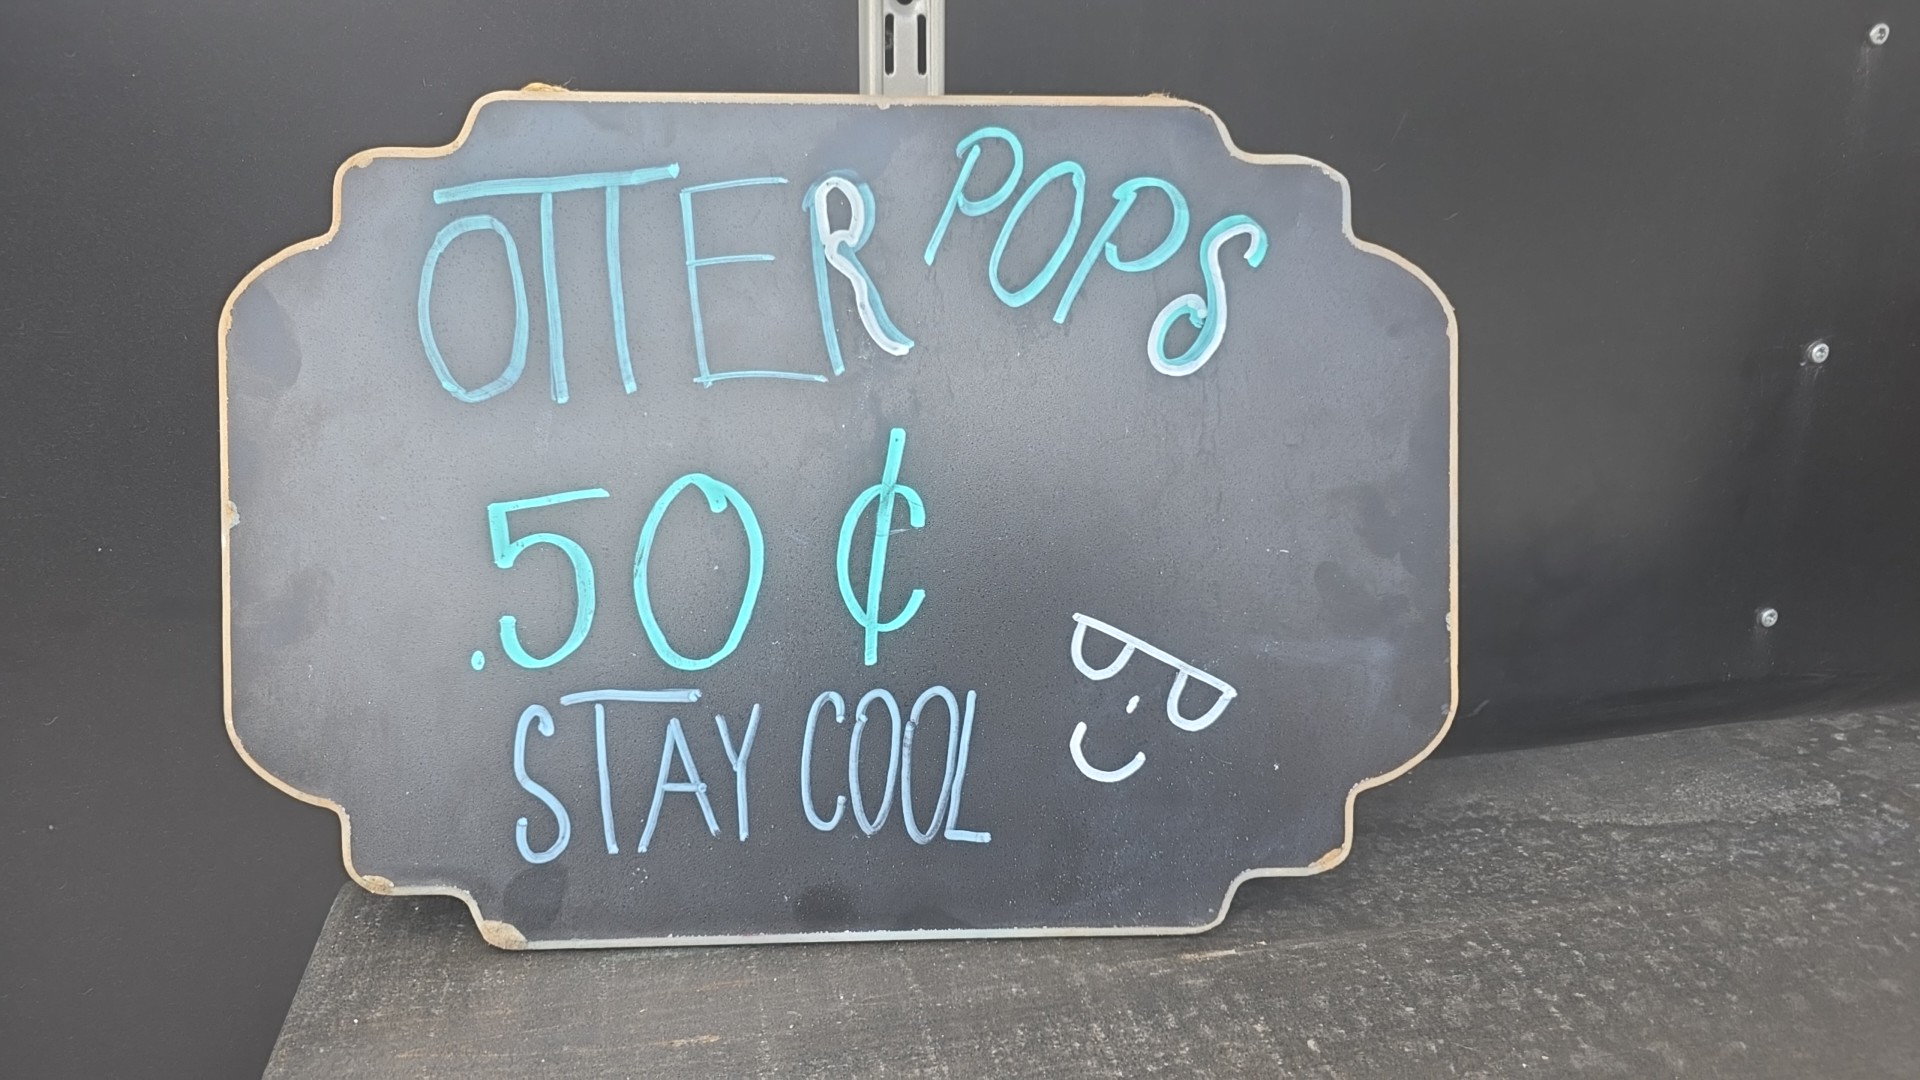 OTTER POPS
.50 ¢
STAY COOL